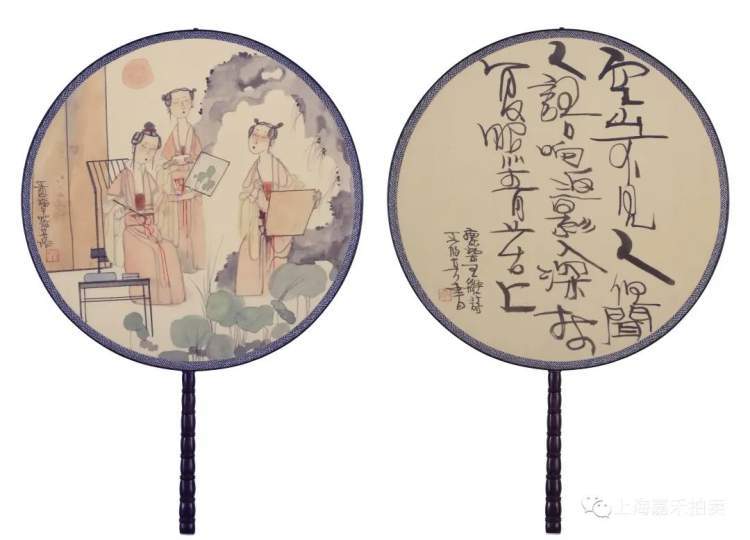 空山不見人但聞
人語响返影入深林
复照青苔上
王維詩
上海嘉禾拍卖